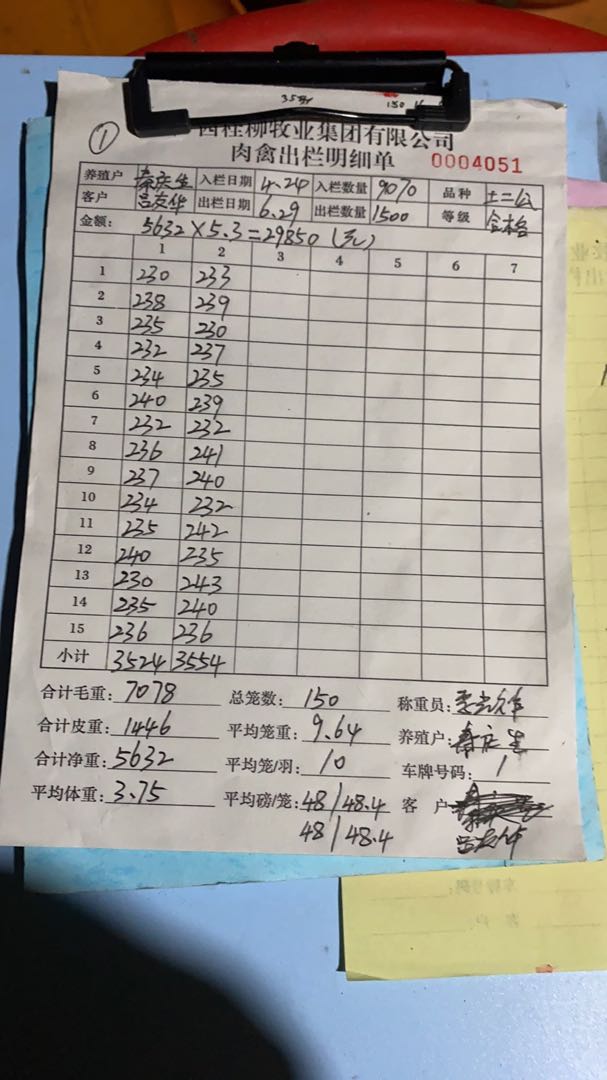 35
150
①
桂柳牧业集团有限公司
肉禽出栏明细单 0004051
养殖户 秦庆生 入栏日期 4.24 入栏数量 9070 品种 土二公
客户 吕发华 出栏日期 6.29 出栏数量 1500 等级 合格
金额: 5632×5.3=29850(元)
1 2 3 4 5 6 7
1 230 233
2 238 239
3 235 230
4 232 237
5 234 235
6 240 239
7 232 232
8 236 241
9 237 240
10 234 232
11 235 242
12 240 235
13 230 243
14 235 240
15 236 236
小计 3524 3554
合计毛重: 7078 总笼数: 150 称重员:
合计皮重: 1446 平均笼重: 9.64 养殖户: 秦庆生
合计净重: 5632 平均笼/羽: 10 车牌号码: 1
平均体重: 3.75 平均磅/笼: 48/48.4 客 户
48/48.4 吕发华